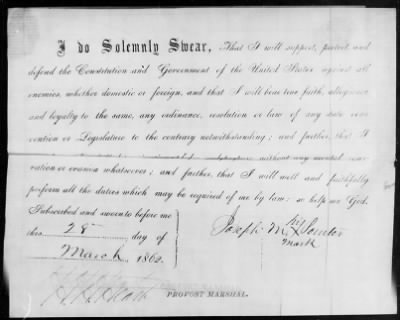 I do Solemnly Swear, That I will support, protect and
defend the Constitution and Government of the United States against all
enemies, whether domestic or foreign, and that I will bear true faith, allegiance
and loyalty to the same, any ordinance, resolution or law of any state con
vention or Legislature to the contrary notwithstanding; and further, that I
without any mental reser
vation or evasion whatsoever; and further, that I will well and faithfully
perform all the duties which may be required of me by law: so help me God.
Subscribed and sworn to before me
this 28 day of
March 1862
Joseph M. his X mark
PROVOST MARSHAL.